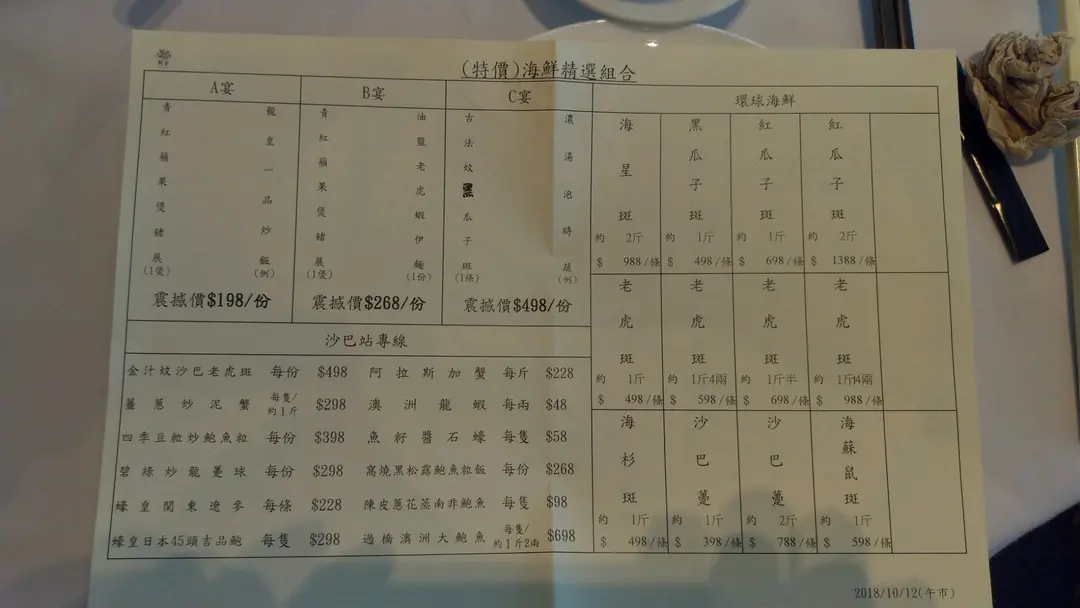 (特價)海鮮精選組合
A宴
青紅蘋果煲豬展(1煲)
龍皇一品炒飯(例)
震撼價$198/份
B宴
青紅蘋果煲豬展(1煲)
油鹽老虎蝦伊麵(1份)
震撼價$268/份
C宴
古法炆黑瓜子斑(1條)
濃湯泡時蔬(例)
震撼價$498/份
環球海鮮
海星斑 約 2斤 $ 988/條
黑瓜子斑 約 1斤 $ 498/條
紅瓜子斑 約 1斤 $ 698/條
紅瓜子斑 約 2斤 $ 1388/條
老虎斑 約 1斤 $ 498/條
老虎斑 約 1斤4兩 $ 598/條
老虎斑 約 1斤半 $ 698/條
老虎斑 約 1斤14兩 $ 988/條
海杉斑 約 1斤 $ 498/條
沙巴躉 約 1斤 $ 398/條
沙巴躉 約 2斤 $ 788/條
海蘇鼠斑 約 1斤 $ 598/條
沙巴站專線
金汁炆沙巴老虎斑 每份 $498 阿拉斯加蟹 每斤 $228
薑蔥炒泥蟹 每隻/約1斤 $298 澳洲龍蝦 每兩 $48
四季豆粒炒鮑魚粒 每份 $398 魚籽醬石蠔 每隻 $58
碧綠炒龍躉球 每份 $298 窩燒黑松露鮑魚粒飯 每份 $268
蠔皇關東遼參 每條 $228 陳皮蔥花蒸南非鮑魚 每隻 $98
蠔皇日本45頭吉品鮑 每隻 $298 過橋澳洲大鮑魚 每隻/約1斤2兩 $698
2018/10/12(午市)